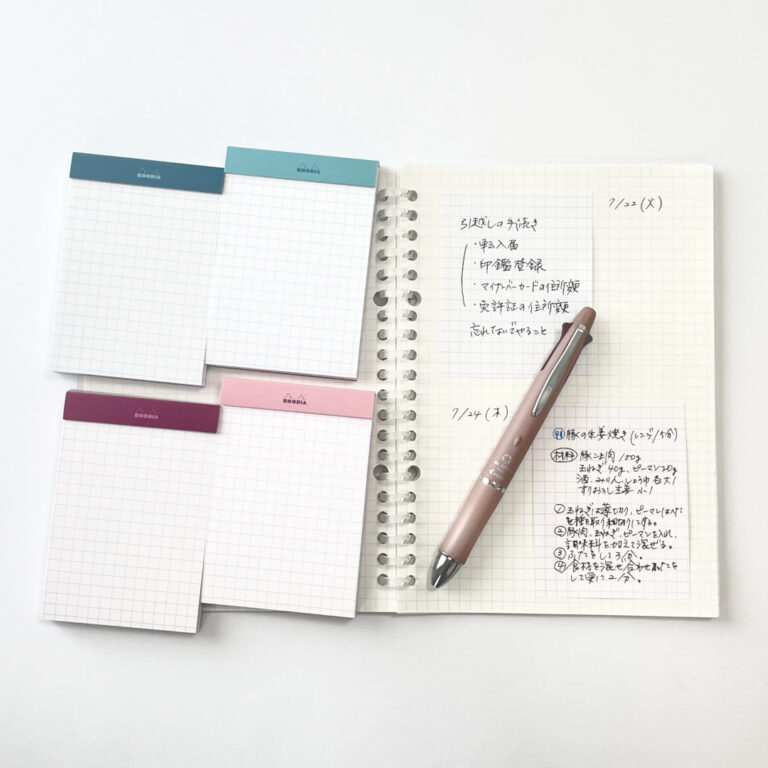 RHODIA
RHODIA
RHODIA
RHODIA
7/22(火)
引越しの手続き
・転入届
・印鑑登録
・マイナンバーカードの住所
・免許証の住所
忘れないでやること
7/24(木)
豚の生姜焼き(レンジ/5分)
材料 豚こま肉 100g
玉ねぎ 40g、ピーマン20g
酒、みりん、しょうゆ 各大1
すりおろし生姜 小1
① 玉ねぎは薄切り、ピーマンは
を取り細切りにする。
② 豚肉、玉ねぎ、ピーマンを入れ、
調味料を加えて混ぜる。
③ ふたをして3分。
④ 食材を混ぜ合わせ
して更に2分。